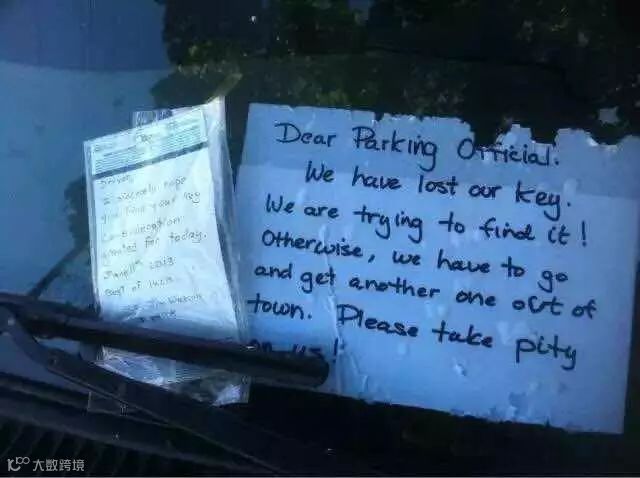 Driver,
I sincerely hope
you find your key
Consideration
granted for today.
Best of luck
Jim
Dear Parking Official.
We have lost our key.
We are trying to find it!
Otherwise, we have to go
and get another one out of
town. Please take pity
on us!
大数跨境